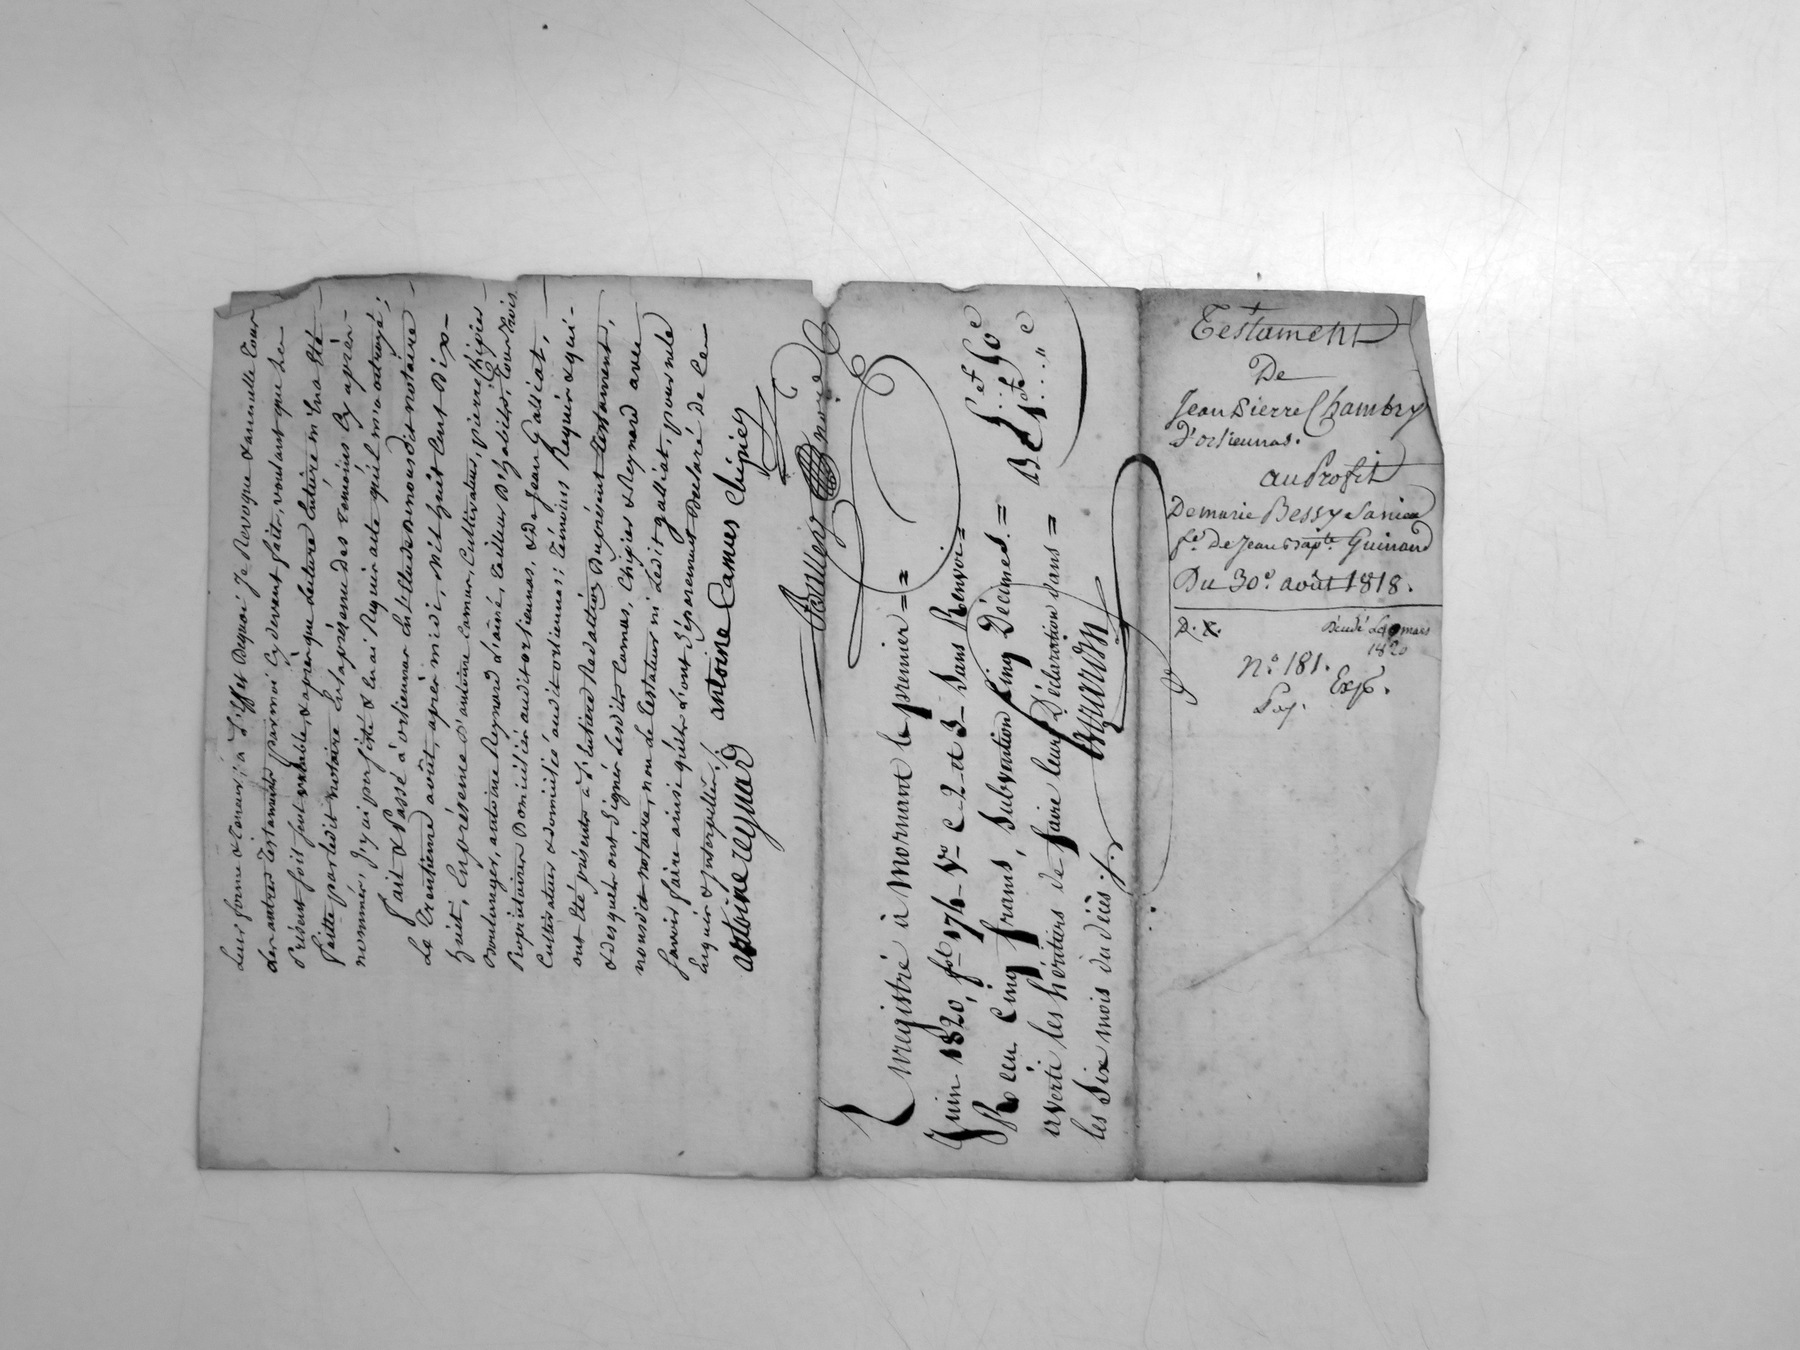 leur forme & teneur; à l'Effet Dequoi Je Revoque & annulle tous
les autres Testaments par moi Cy devant faits, voulant que le
présent soit seul valable, & après que lecture Entière m'En a été
faitte par ledit notaire En la présence des témoins Cy après
nommés, J'y ai persisté & lui ai Requis acte qu'il m'a octroyé;
Fait & Passé à orlienas En l'Etude de nousdit notaire
Le Trentieme août, après midi, Mil huit Cent Dix-
huit, En présence d'antoine Camus, Cultivateur, pierre Chipier
Boulanger, antoine Reynard L'ainé, tailleur D'habits, tous trois
Propriétaires Domiciliés audit orlienas, & De Jean Galliat,
Cultivateur & domicilié audit orlienas; témoins Requis & qui
ont été présents à l'entière Rédaction Du présent testament,
& desquels ont signé lesdits Camus, Chipier & Reynard avec
nousdit notaire, non le testateur ni ledit galliat, pour ne le
savoir faire ainsi qu'ils l'ont séparement Déclaré de ce
Enquis & Interpellés./.
antoine reynard antoine Camus Chipier
Enregistré à Mornant le premier =
Juin 1820, fol 176 Vo C. 2 et 3 Sans Renvoi =
Reçu cinq francs, subvention Cinq Décimes. = 5 f 50 c
averti les héritiers de faire leur Déclaration dans =
les Six mois du décès ./.
Testament
De
Jean Pierre Chambry
D'orlienas.
au Profit
De marie Bessy
fe. De Jean Bapte. Guinand
Du 30e. août 1818.
D. X.
Décédé Le 9 mars
1820
No. 181.
Exp.